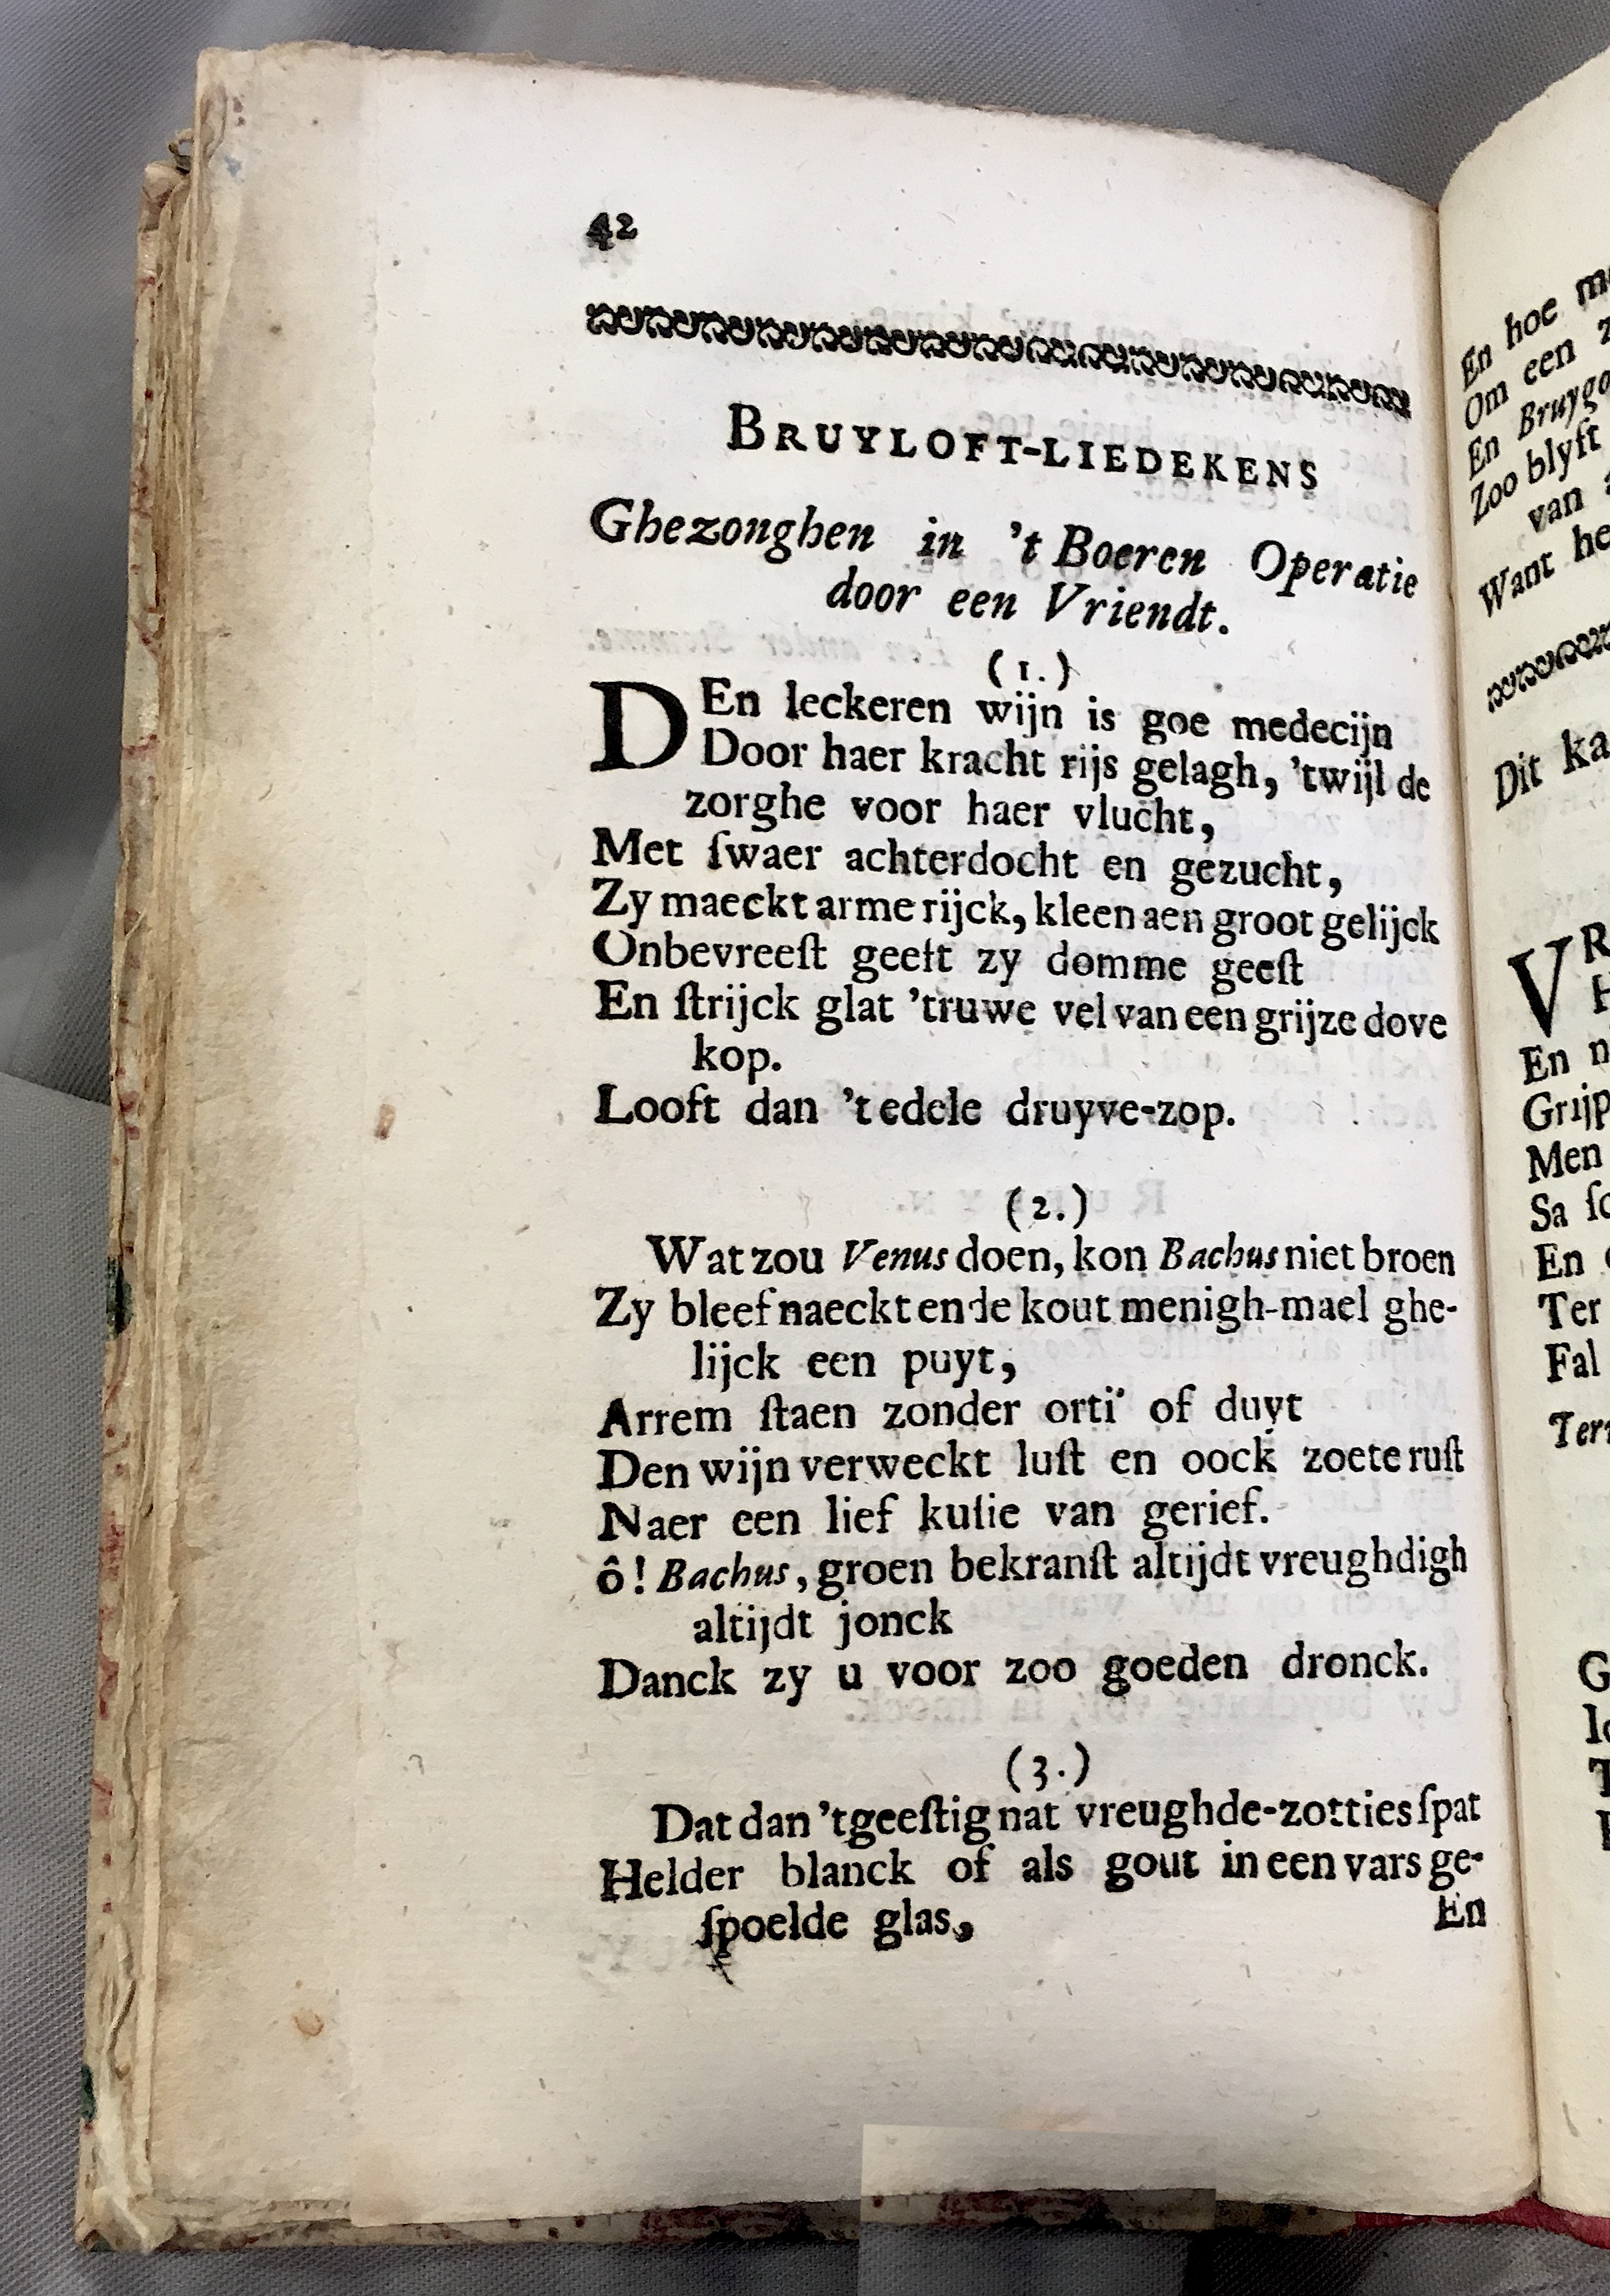 42
BRUYLOFT-LIEDEKENS
Ghezonghen in 't Boeren Operatie
door een Vriendt.
(1.)
DEn leckeren wijn is goe medecijn
Door haer kracht rijs gelagh, 'twijl de
zorghe voor haer vlucht,
Met ſwaer achterdocht en gezucht,
Zy maeckt arme rijck, kleen aen groot gelijck
Onbevreeſt geeft zy domme geeſt
En ſtrijck glat 'truwe vel van een grijze dove
kop.
Looft dan 't edele druyve-zop.
(2.)
Wat zou Venus doen, kon Bachus niet broen
Zy bleef naeckt ende kout menigh-mael ghe-
lijck een puyt,
Arrem ſtaen zonder orti' of duyt
Den wijn verweckt luſt en oock zoete ruſt
Naer een lief kuſie van gerief.
ô! Bachus, groen bekranſt altijdt vreughdigh
altijdt jonck
Danck zy u voor zoo goeden dronck.
(3.)
Dat dan 'tgeeſtig nat vreughde-zotties ſpat
Helder blanck of als gout in een vars ge-
ſpoelde glas,
En
En hoe
Om een
En
Zoo blyft
van
Want
Dit
V
En
Men
Sa
En
Ter
Fal